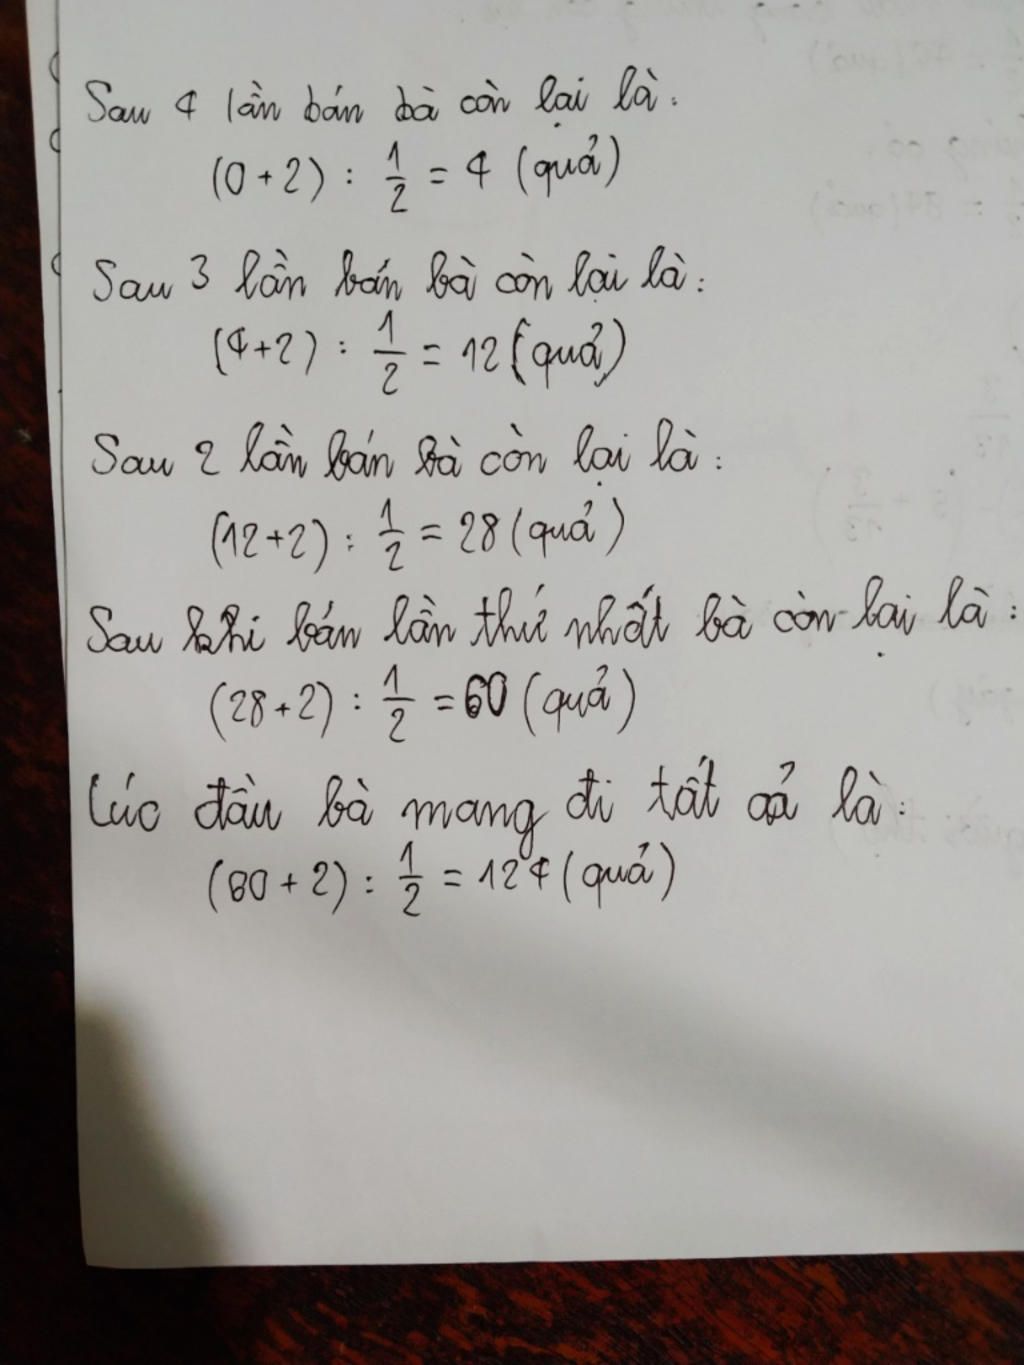 Sau 4 lần bán bà còn lại là:
(0 + 2) : 1/2 = 4 (quả)
Sau 3 lần bán bà còn lại là:
(4+2) : 1/2 = 12 (quả)
Sau 2 lần bán bà còn lại là:
(12+2) : 1/2 = 28 (quả)
Sau khi bán lần thứ nhất bà còn lại là:
(28+2) : 1/2 = 60 (quả)
Lúc đầu bà mang đi tất cả là:
(60 + 2) : 1/2 = 124 (quả)